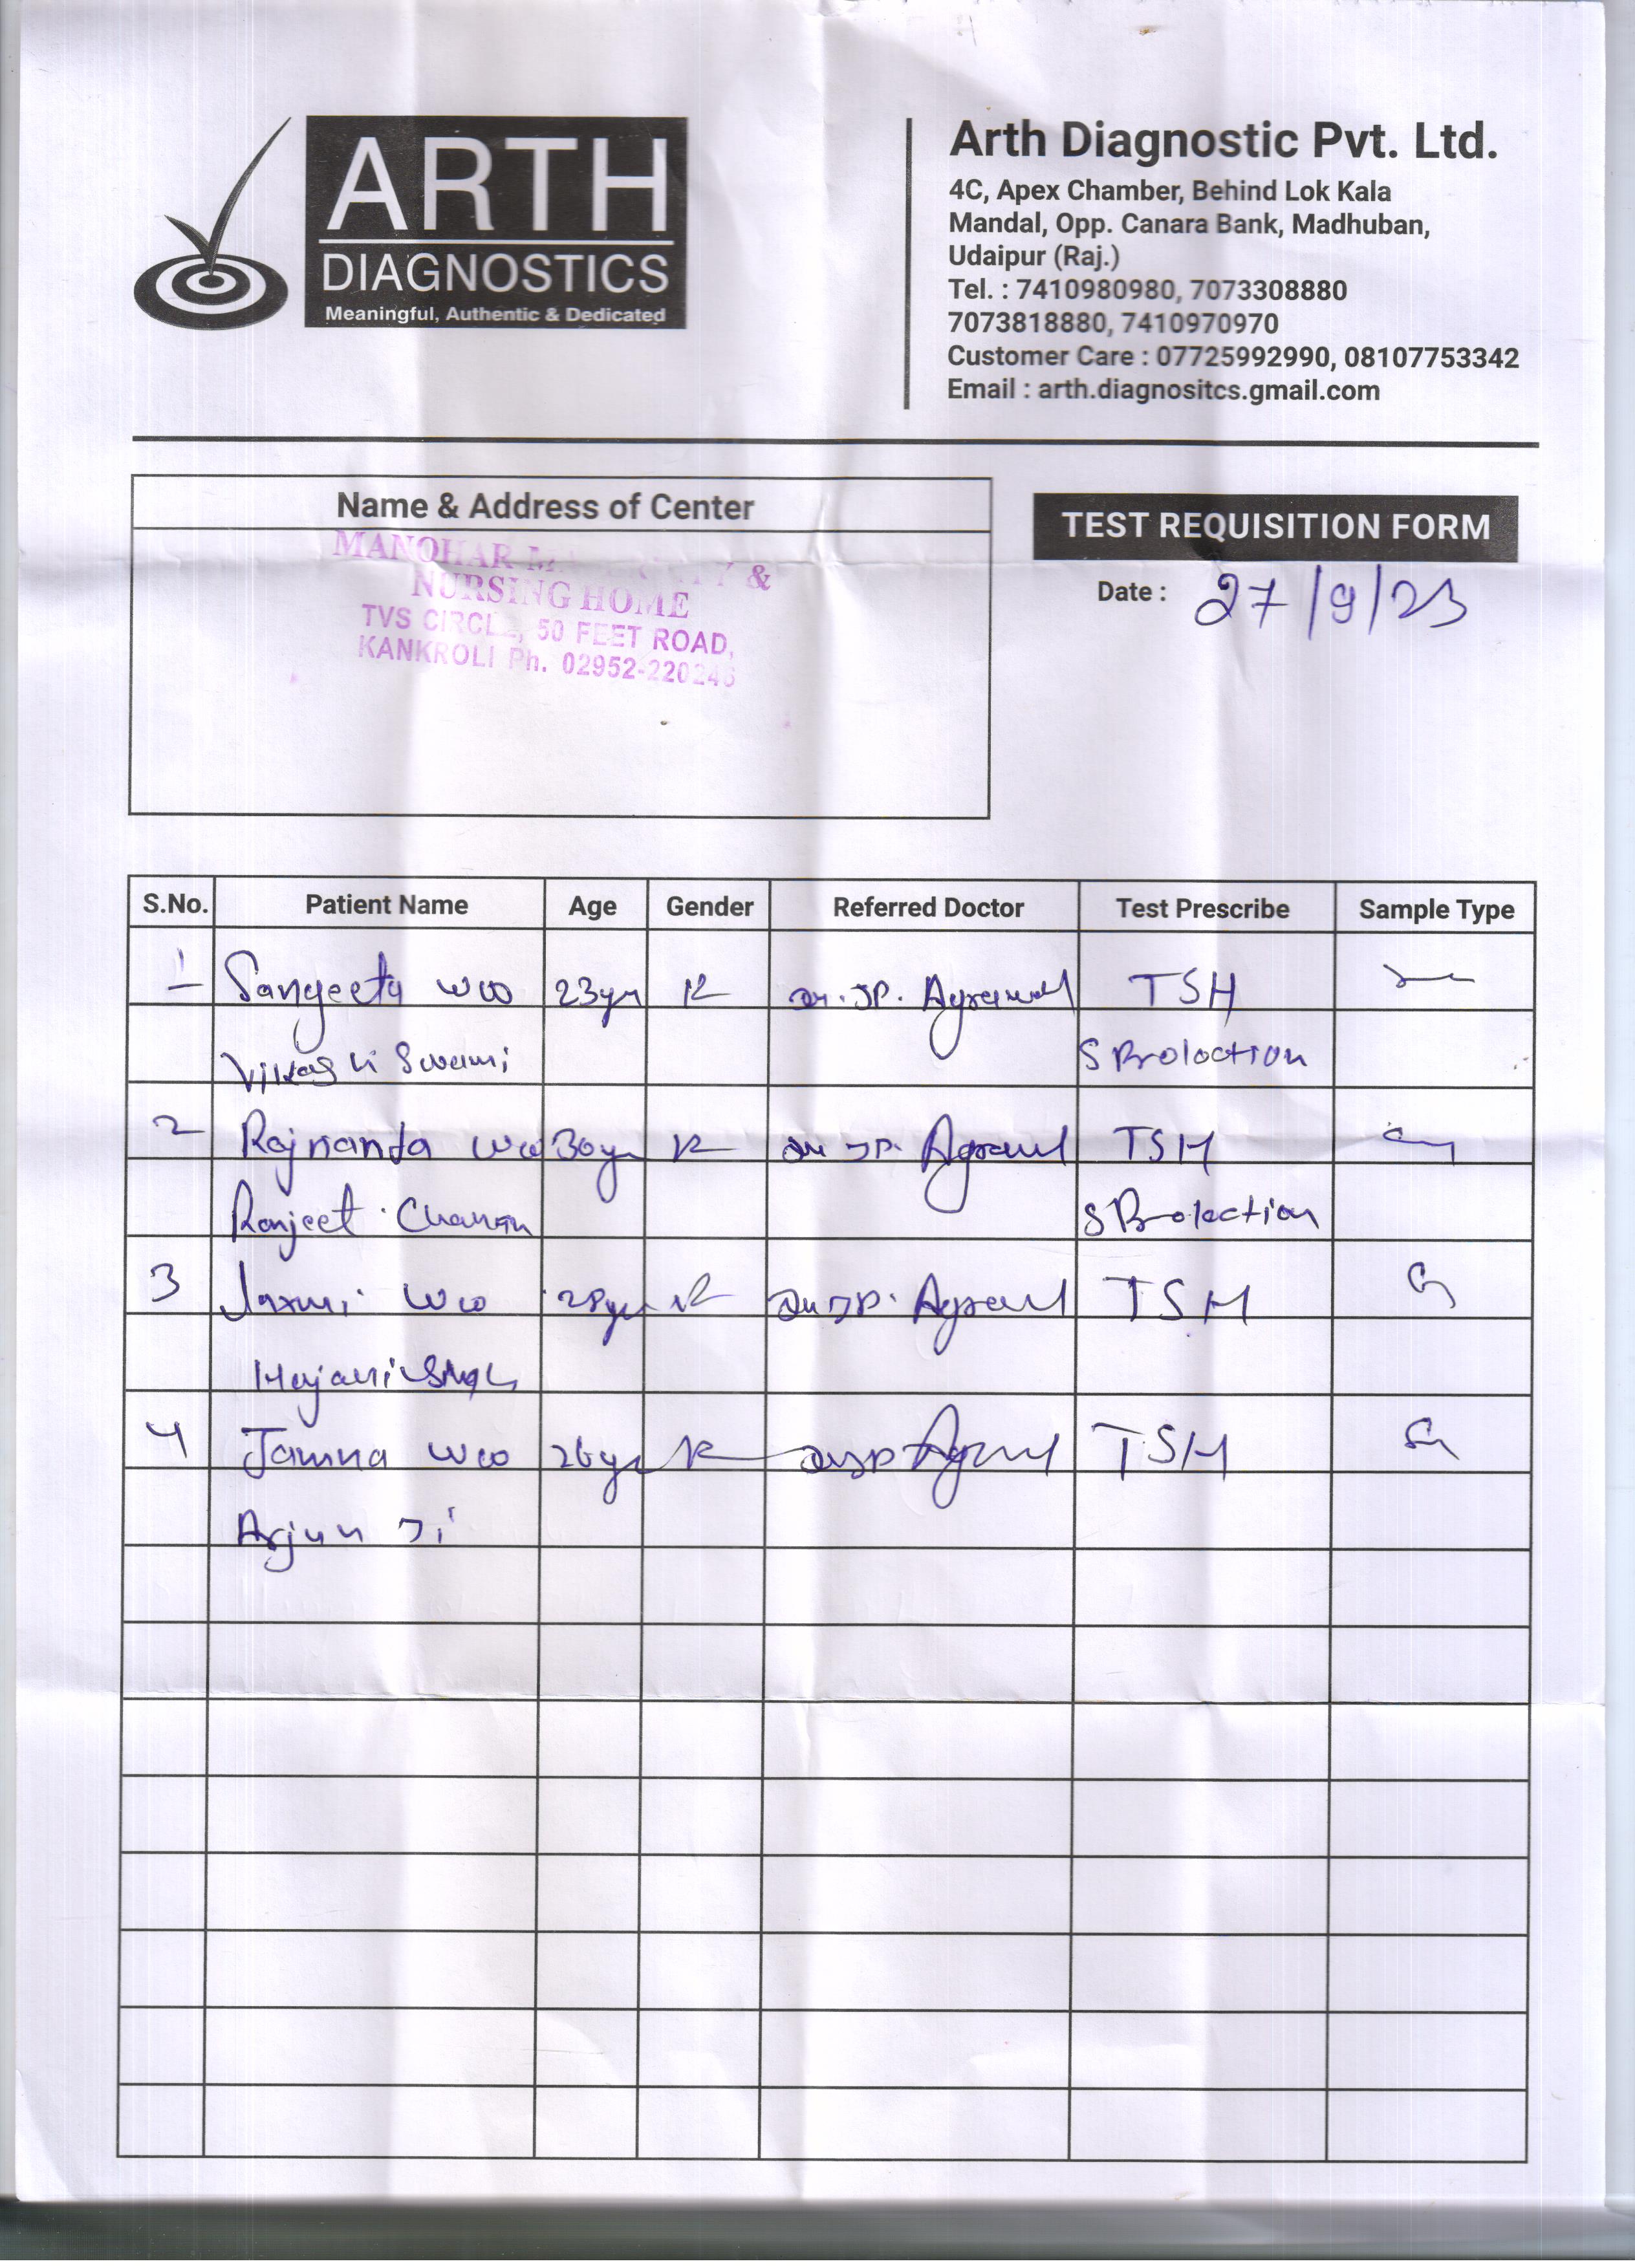 ARTH
DIAGNOSTICS
Meaningful, Authentic & Dedicated
Arth Diagnostic Pvt. Ltd.
4C, Apex Chamber, Behind Lok Kala
Mandal, Opp. Canara Bank, Madhuban,
Udaipur (Raj.)
Tel. : 7410980980, 7073308880
7073818880, 7410970970
Customer Care : 07725992990, 08107753342
Email : arth.diagnositcs.gmail.com
Name & Address of Center
MANOHAR &
NURSING HOME
TVS 50 FEET ROAD,
KANKROLI Ph. 02952-220246
TEST REQUISITION FORM
Date : 27/9/23
S.No. Patient Name Age Gender Referred Doctor Test Prescribe Sample Type
1 Sangeeta w/o 23yr JP. Agrawal TSH
Swami S Prolaction
2 Rajnanda w/o 30yr JP. Agrawal TSH
Ranjeet S Prolaction
3 w/o 28yr JP. Agrawal TSH
Singh
4 Jamna w/o 26yr JP Agrawal TSH
Arjun Ji